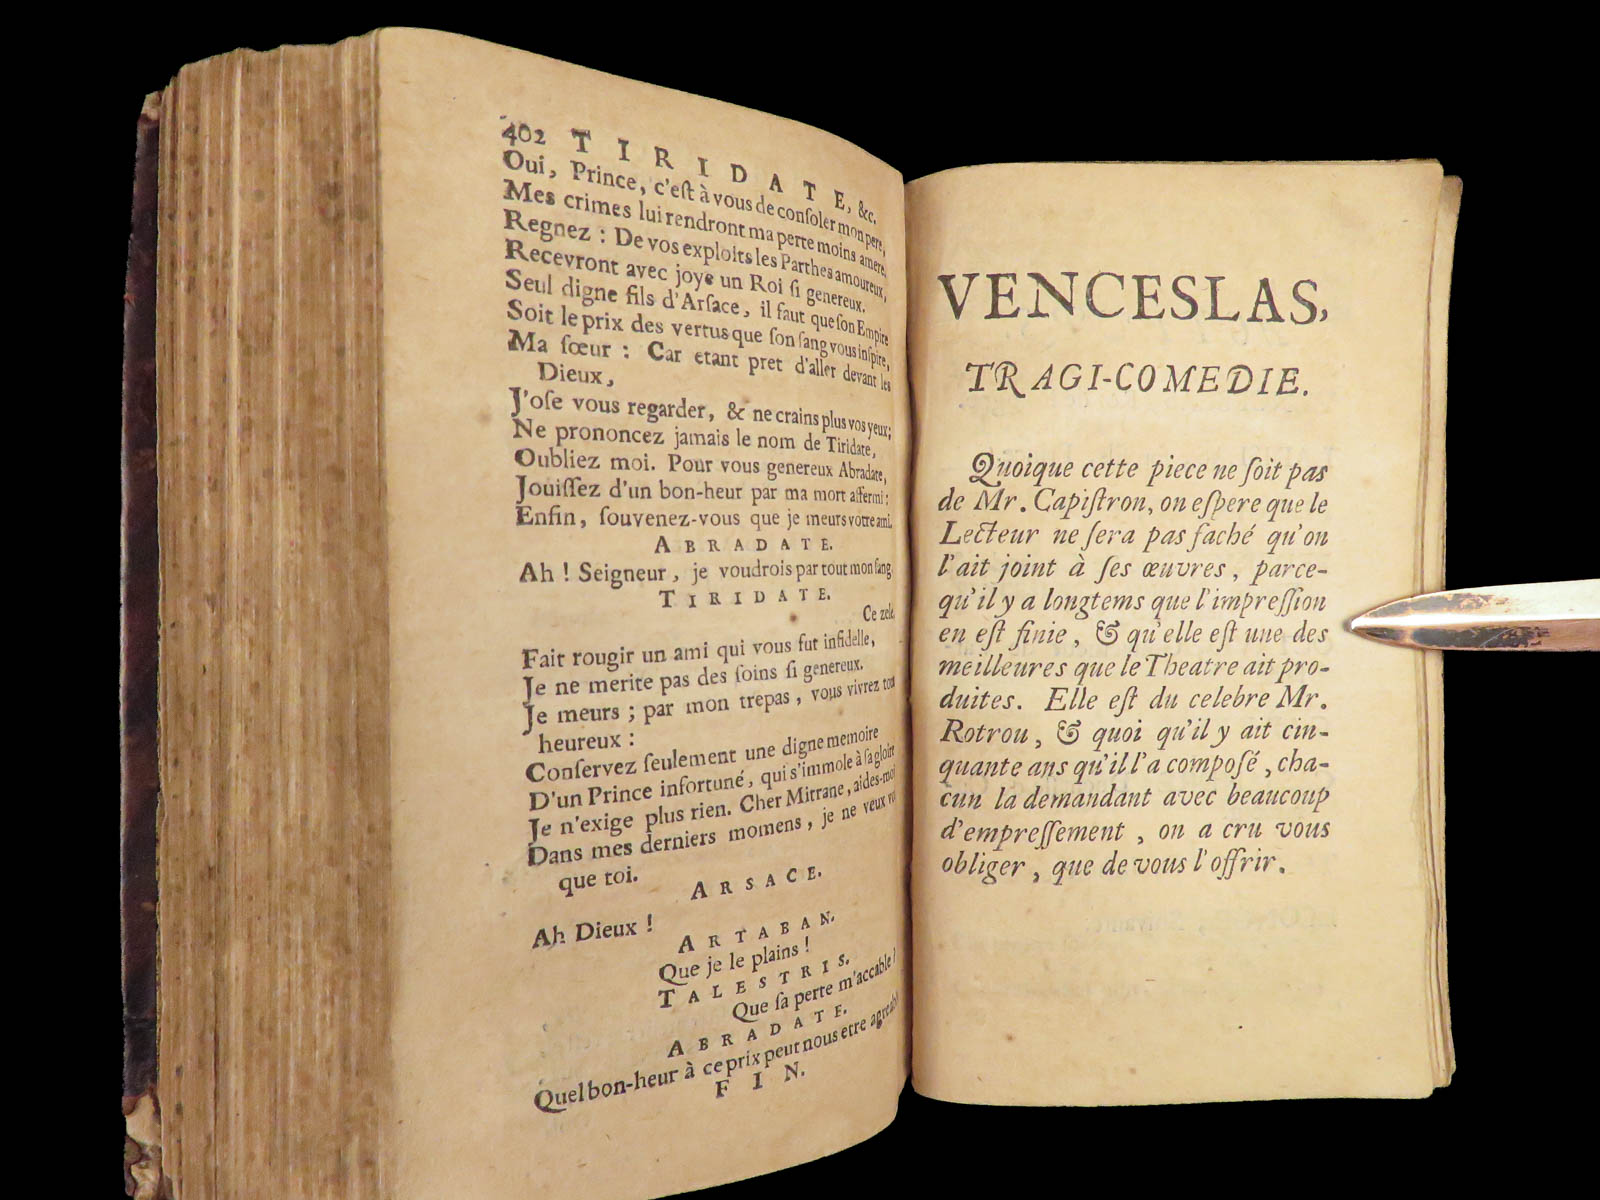 402 TIRIDATE, &c.
Oui, Prince, c'eſt à vous de conſoler mon pere,
Mes crimes lui rendront ma perte moins amere,
Regnez : De vos exploits les Parthes amoureux,
Recevront avec joye un Roi ſi genereux.
Seul digne fils d'Arſace, il faut que ſon Empire
Soit le prix des vertus que ſon ſang vous inſpire,
Ma ſœur : Car etant pret d'aller devant les
Dieux,
J'oſe vous regarder, & ne crains plus vos yeux;
Ne prononcez jamais le nom de Tiridate,
Oubliez moi. Pour vous genereux Abradate,
Jouiſſez d'un bon-heur par ma mort affermi:
Enfin, ſouvenez-vous que je meurs votre ami.
ABRADATE.
Ah ! Seigneur, je voudrois par tout mon ſang
TIRIDATE.
Ce zele
Fait rougir un ami qui vous fut infidelle,
Je ne merite pas des ſoins ſi genereux.
Je meurs ; par mon trepas, vous vivrez tout
heureux :
Conſervez ſeulement une digne memoire
D'un Prince infortuné, qui s'immole à ſa gloire
Je n'exige plus rien. Cher Mitrane, aides-moi
Dans mes derniers momens, je ne veux
que toi.
ARSACE.
Ah Dieux !
ARTABAN.
Que je le plains !
TALESTRIS.
Que ſa perte m'accable !
ABRADATE.
Quel bon-heur à ce prix peut nous etre
FIN.
VENCESLAS,
TRAGI-COMEDIE.
Quoique cette piece ne ſoit pas
de Mr. Capiſtron, on eſpere que le
Lecteur ne ſera pas faché qu'on
l'ait joint à ſes œuvres, parce-
qu'il y a longtems que l'impreſſion
en eſt finie, & qu'elle eſt une des
meilleures que le Theatre ait pro-
duites. Elle eſt du celebre Mr.
Rotrou, & quoi qu'il y ait cin-
quante ans qu'il l'a compoſé, cha-
cun la demandant avec beaucoup
d'empreſſement, on a cru vous
obliger, que de vous l'offrir.